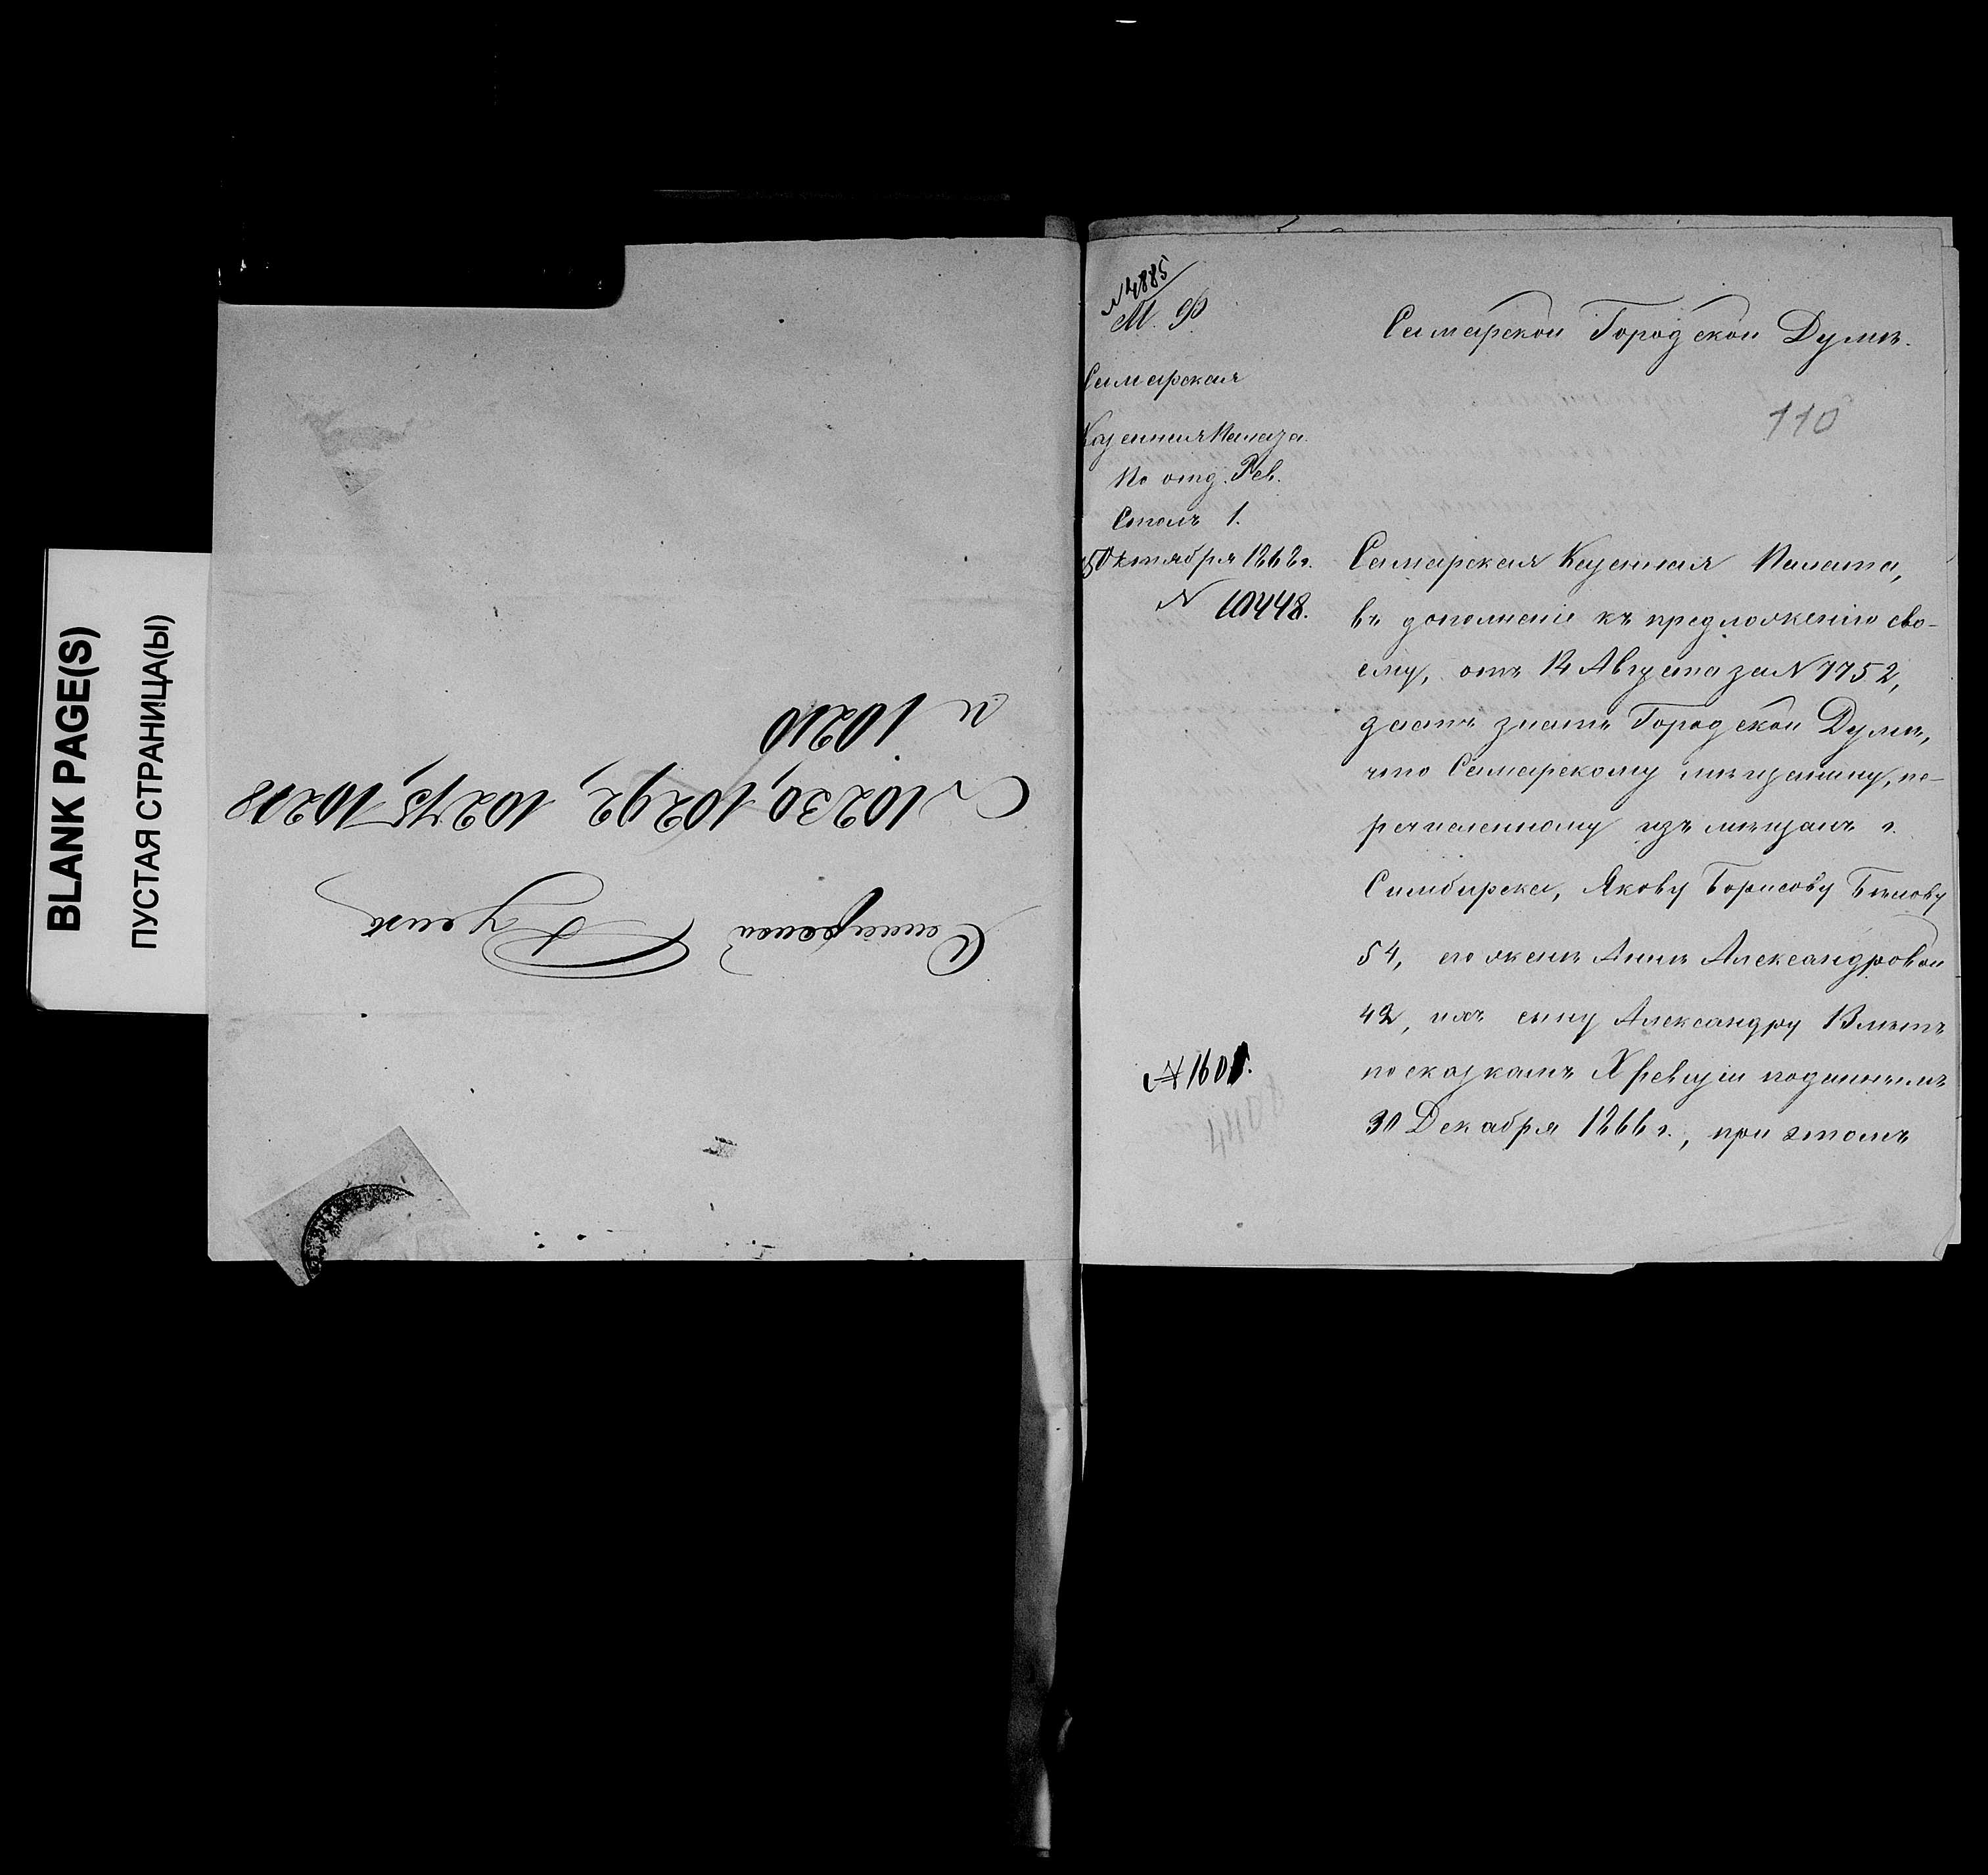 BLANK PAGE(S)
ПУСТАЯ СТРАНИЦА(Ы)
Самарской Думѣ
С № 10230, 10292, 10275, 10218
и 10210
№ 4885
М. Ф.
Самарская
Казенная Палата.
По отд. Рев.
Столъ 1.
Октября 1868 г.
№ 10448.
№ 1601.
Самарской Городской Думѣ.
110
Самарская Казенная Палата,
въ дополненіе къ предложенію сво-
ему, отъ 14 Августа за № 7752,
даетъ знать Городской Думѣ,
что Самарскому мѣщанину, пе-
речисленному изъ мѣщанъ г.
Симбирска, Якову Борисову Бѣлову
54, его женѣ Аннѣ Александровой
42, ихъ сыну Александру 13 лѣтъ
по сказкамъ X ревизіи поданнымъ
30 Декабря 1866 г., при этомъ